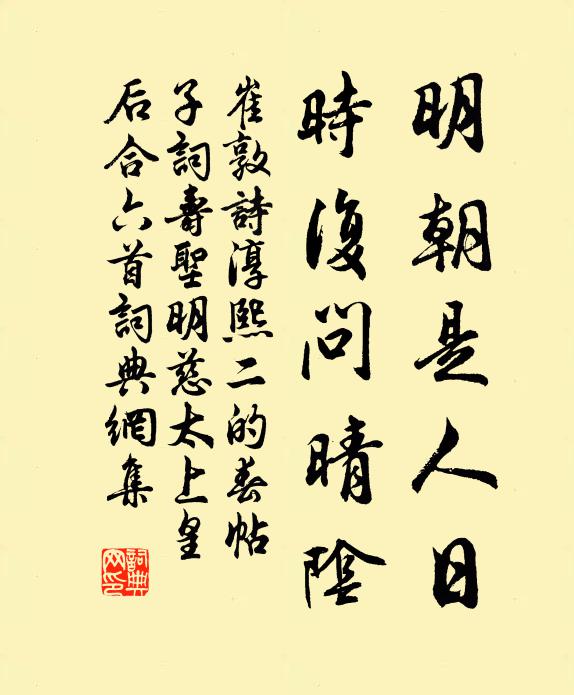 明朝是人日
時復問晴陰
崔敦詩淳熙二的春帖
子詞壽聖明慈太上皇
后合六首詞典網集
詞典網印